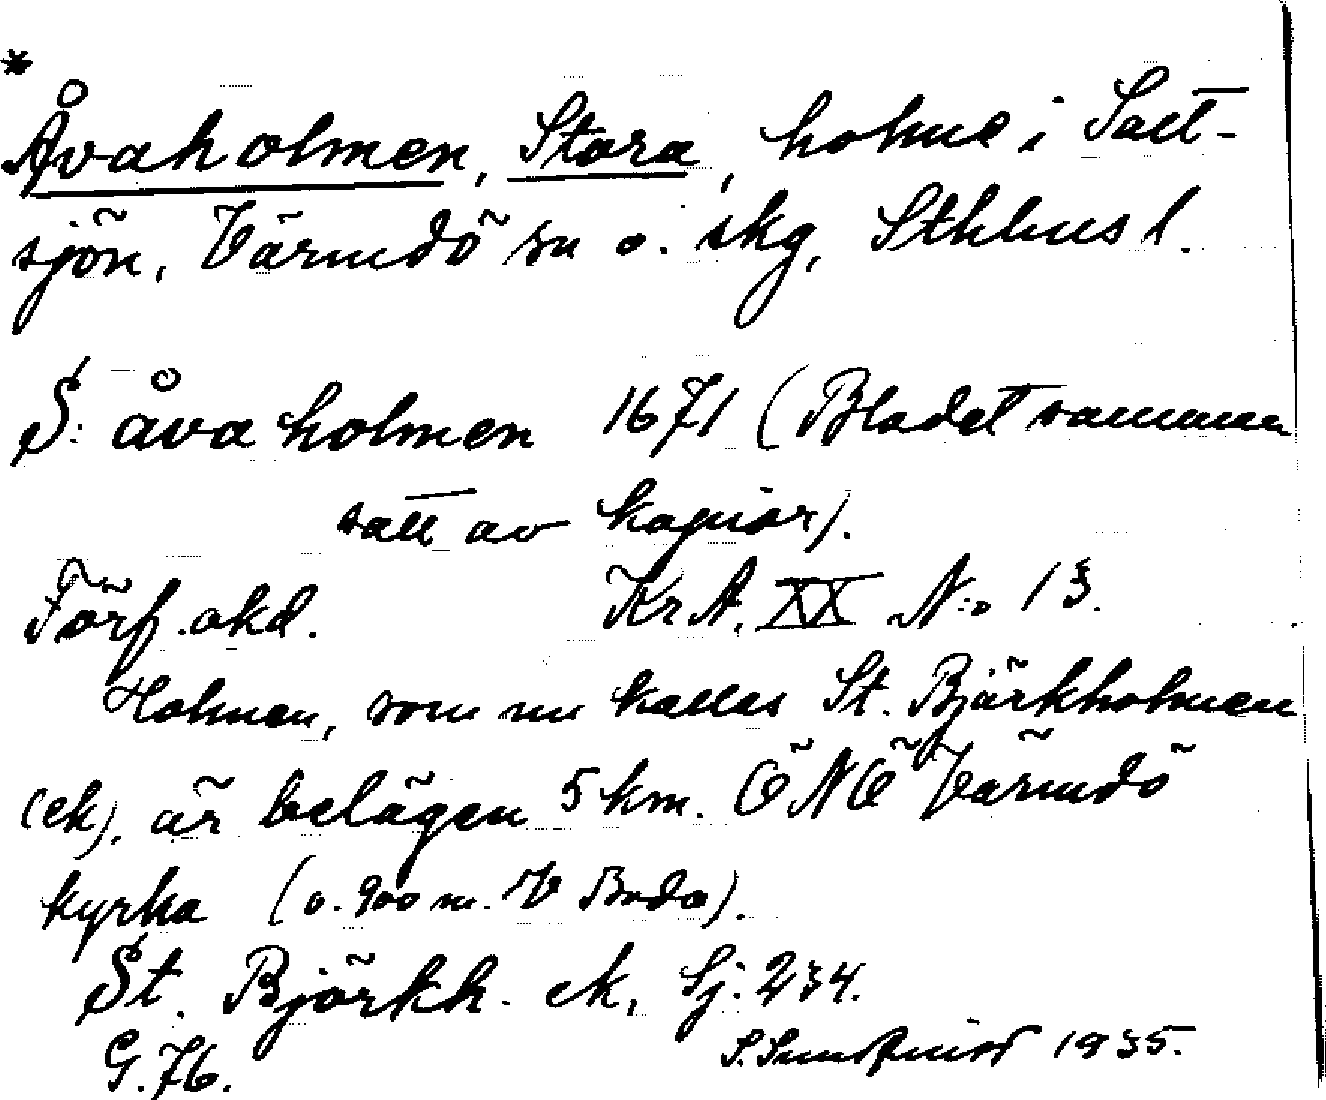 *
Åvaholmen, Stora, holme i Salt-
sjön, Värmdö sn o. skg, Sthlms l.
S: åva holmen 1671 (Bladet samman
satt av kopior).
Förf. okd. KrA. XX N:o 13.
Holmen, som nu kallas St. Björkholmen
(ek), är belägen 5 km. ÖNÖ Värmdö
kyrka (o. 900 m. V Boda).
St. Björkh. ek, Sj. 234.
G. 76. S. Sundquist 1935.